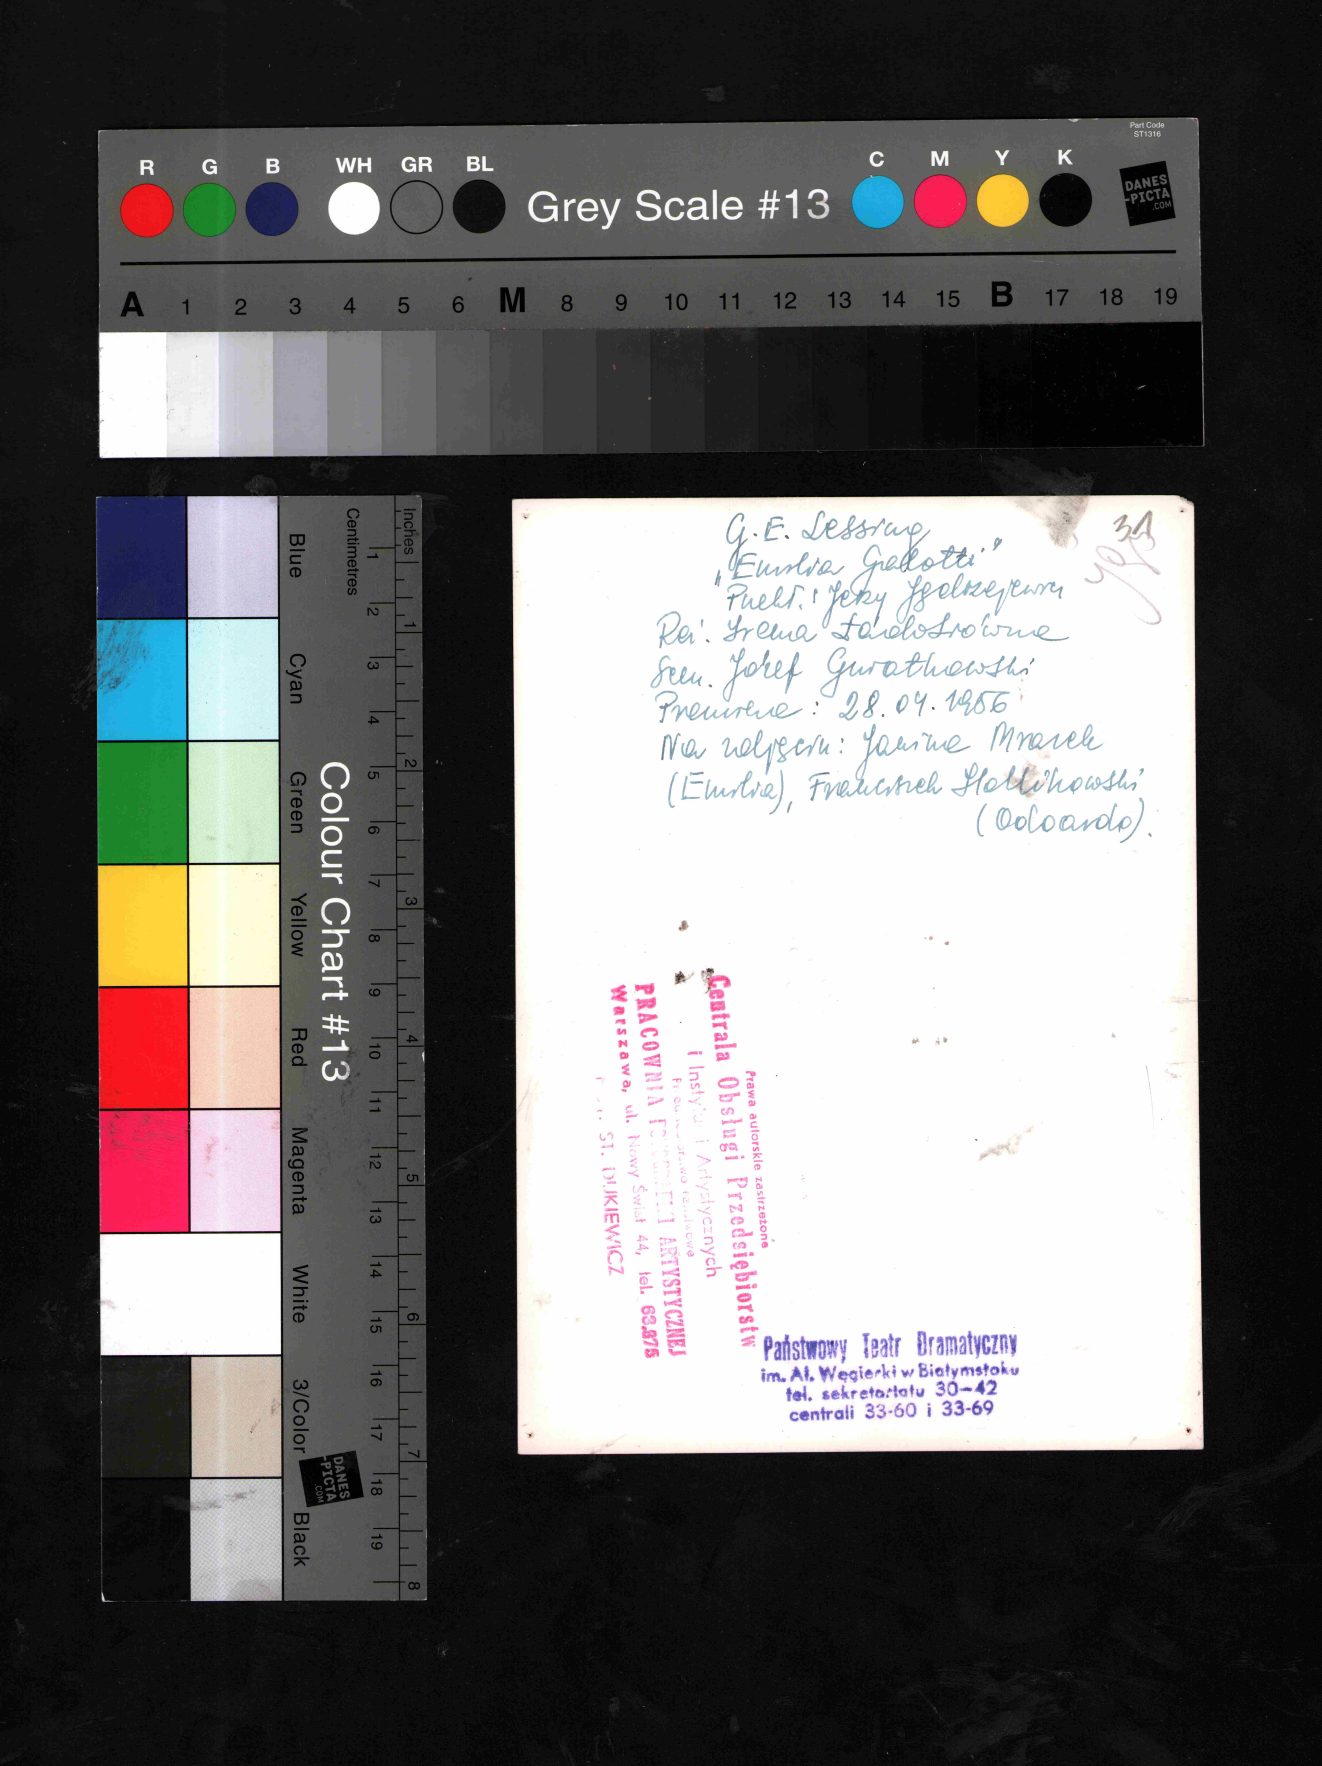 Part Code
ST1316
R G B WH GR BL Grey Scale #13 C M Y K
DANES
-PICTA
.COM
A 1 2 3 4 5 6 M 8 9 10 11 12 13 14 15 B 17 18 19
Colour Chart #13
Blue Cyan Green Yellow Red Magenta White 3/Color Black
Centimetres
1 2 3 4 5 6 7 8 9 10 11 12 13 14 15 16 17 18 19
Inches
1 2 3 4 5 6 7 8
DANES
-PICTA
.COM
31
G. E. Lessing
„Emilia Galotti"
Jerzy
Reż. Irena Ładosiówna
Scen. Józef
Premiera: 28.04.1956
Na zdjęciu: Janina Mrazek
(Emilia), Franciszek
(Odoardo).
Prawa autorskie zastrzeżone
Centrala Obsługi Przedsiębiorstw
i Instytucji Artystycznych
PRACOWNIA ARTYSTYCZNEJ
Warszawa, ul. Nowy Świat 44, tel.
ST. DUKIEWICZ
Państwowy Teatr Dramatyczny
im. Al. Węgierki w Białymstoku
tel. sekretariatu 30-42
centrali 33-60 i 33-69